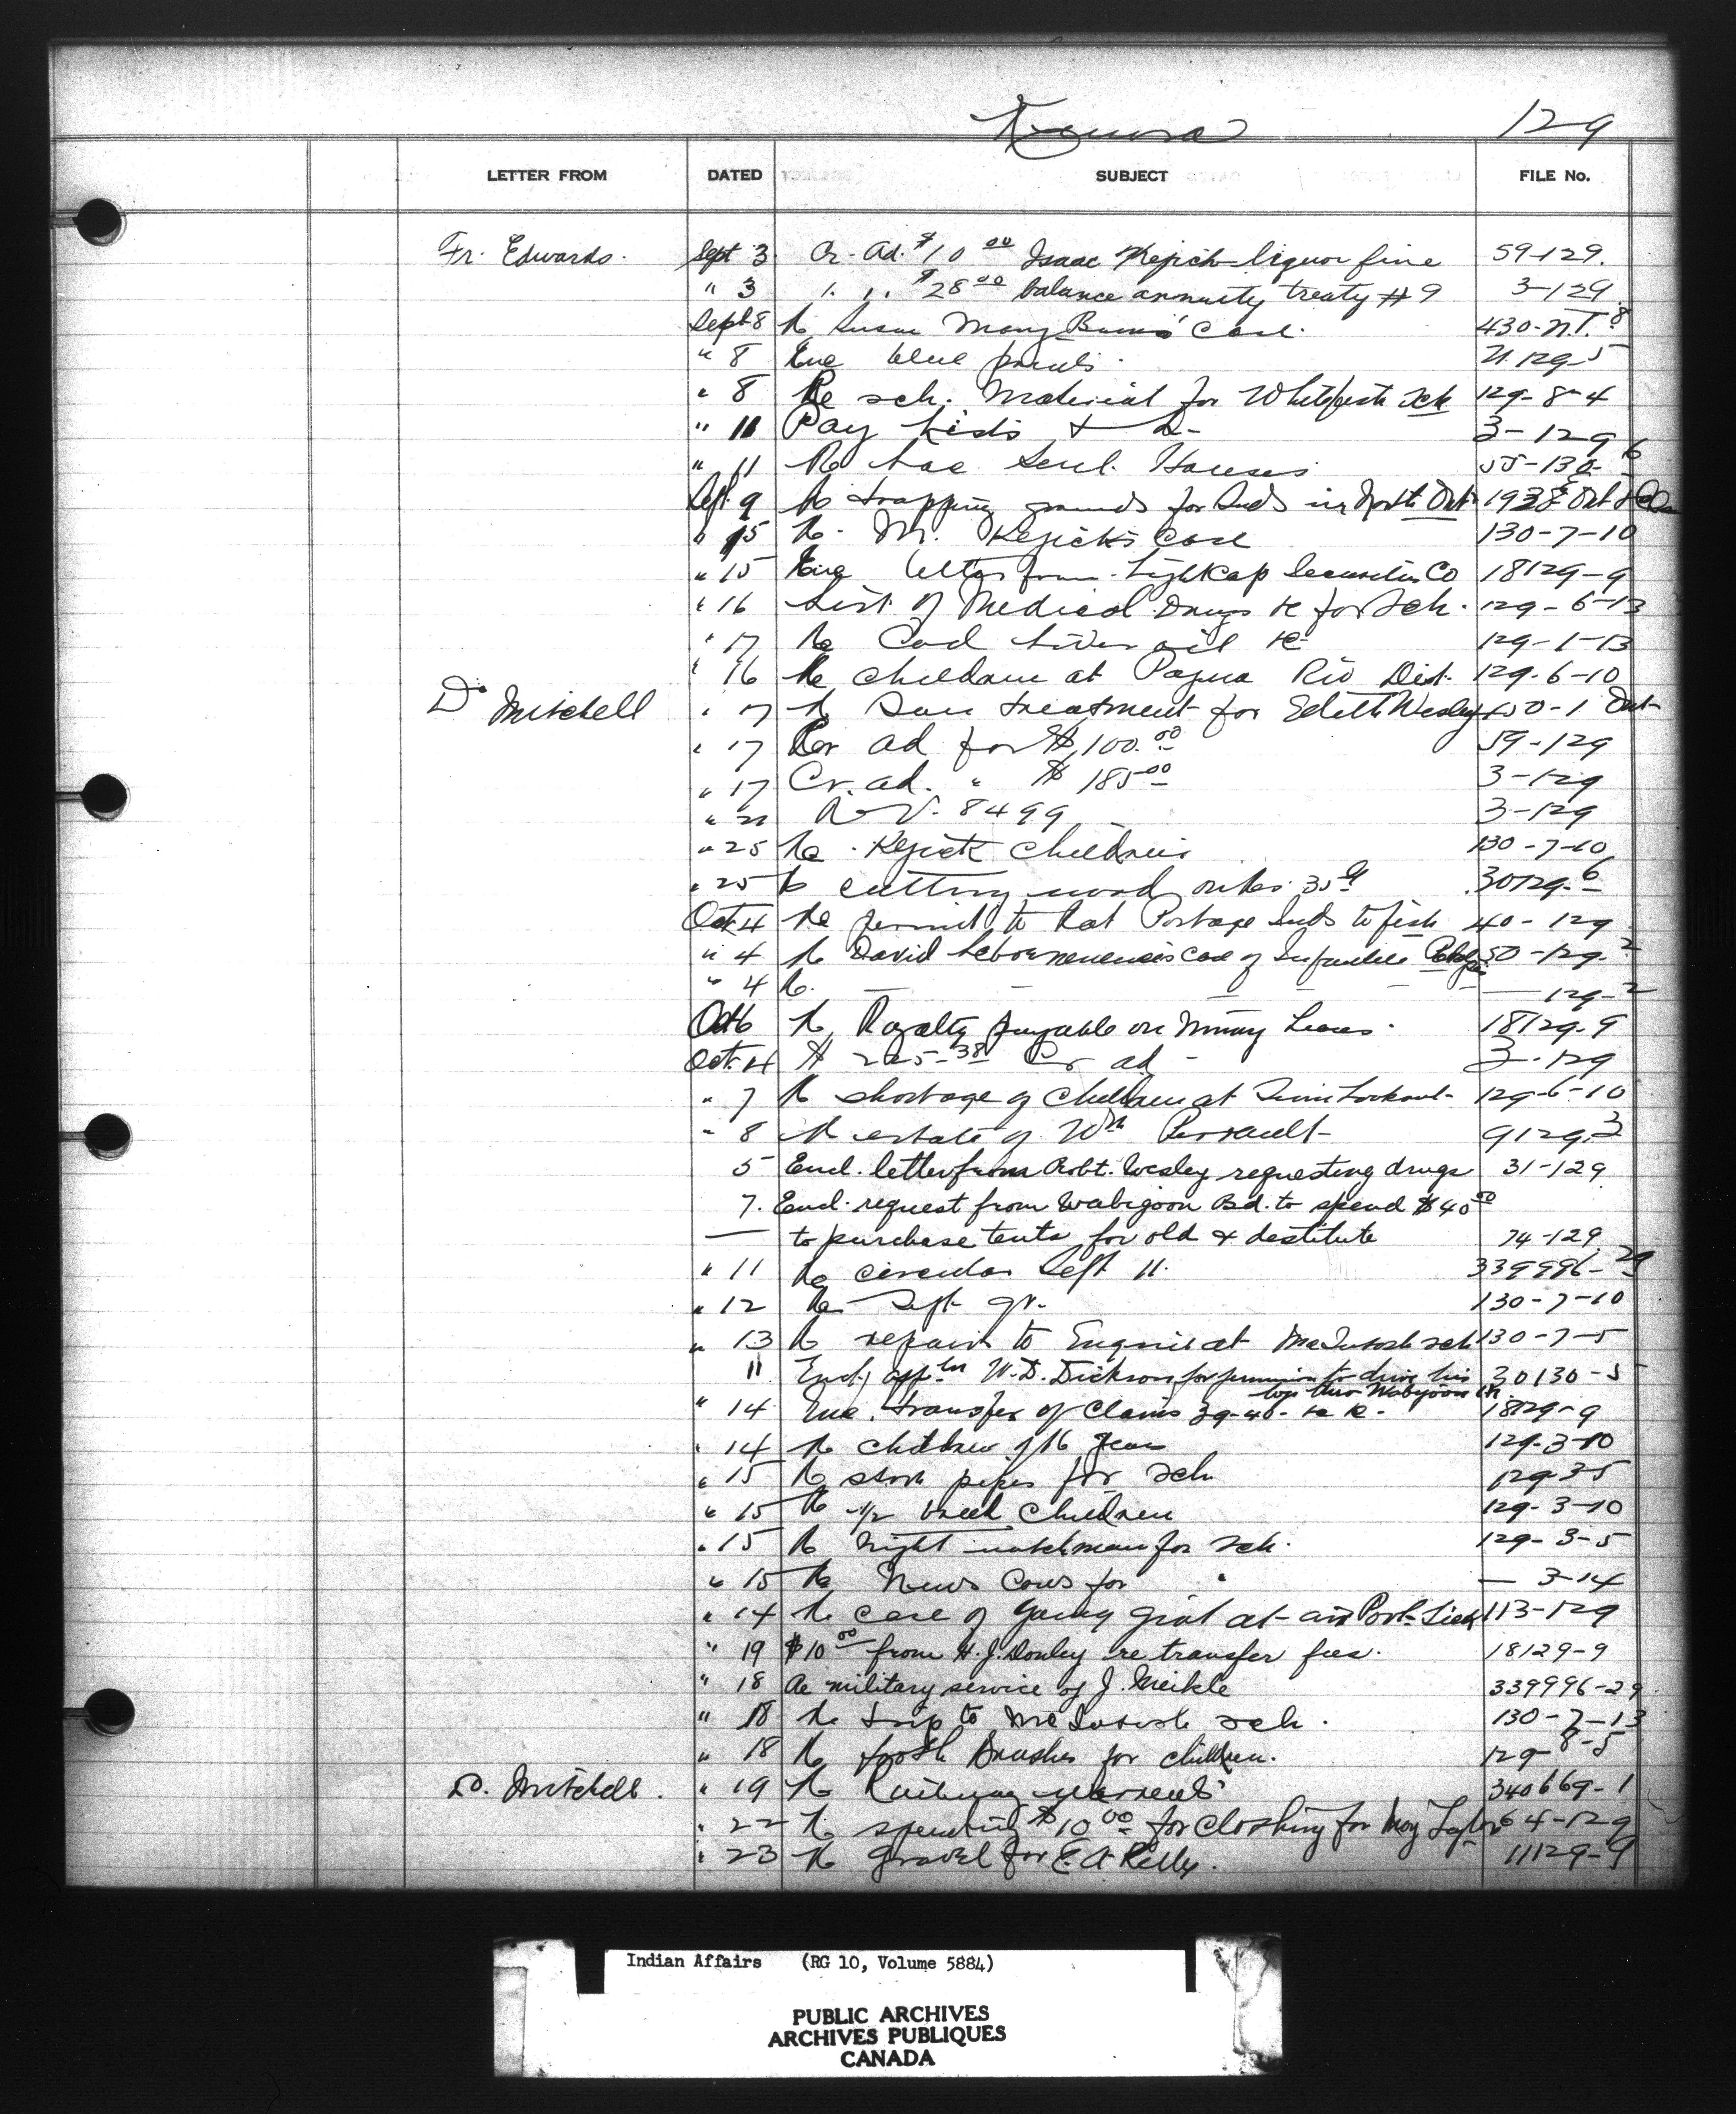 Kenora 129
LETTER FROM DATED SUBJECT FILE No.
Fr. Edwards. Sept 3 Cr. Ad. $10 00 Isaac Kejick liquor fine 59-129.
" 3 " " $28 00 balance annuity treaty #9 3-129
Sept 8 Re Susan Mary case. 430-N.T. 8
" 8 Enc blue prints.
" 8 Re sch. Material for Whitefish sch 129-8-4
" 11 Pay Lists & 3-129
" 11 Re Houses 55-130-6
Sept. 9 Re trapping grounds for Inds in North Ont.
" 15 Re. M. Kejick's case 130-7-10
" 15 Enc letter from Lightcap Securities Co 18129-9
" 16 List of Medical Drugs &c for sch. 129-6-13
" 17 Re Cod Liver oil &c 129-1-13
" 16 Re children at Rio Dist. 129-6-10
Dr Mitchell " 17 Re treatment for Edith Wesley
" 17 Cr ad for $100.00 59-129
" 17 Cr. ad. " $185 00 3-129
R. V. 8499 3-129
" 25 Re Kejick children 130-7-10
" 25 Re cutting wood on Res. 35 30129-6
Oct 4 Re permit to Rat Portage Inds to fish 40-129
" 4 Re David case of Infantile 50-129-2
" 4 Re. — — — — — 129-2
Oct 6 Re Royalty payable on mining Leases. 18129-9
Oct. 4 $225-38 Cr ad 3-129
" 7 Re shortage of children at Sioux Lookout 129-6-10
" 8 Re estate of Wm Perrault 9129-3
5 Encl. letter from Robt. Wesley requesting drugs 31-129
7. Encl. request from Wabigoon Bd. to spend $40 00
— to purchase tents for old & destitute 74-129
" 11 Re circular Sept 11. 339996-29
" 12 Re Sept qr. 130-7-10
" 13 Re repairs to Engine at McIntosh sch 130-7-5
11 Encl. appln W.D. Dickson for permission to drive his 30130-5
logs thro Wabigoon
" 14 Enc. transfer of Claims 39-40- &c &c. 18129-9
" 14 Re children of 16 years 129-3-10
" 15 Re stove pipes for sch 129-3-5
" 15 Re 1/2 breed Children 129-3-10
" 15 Re night watchman for sch. 129-3-5
" 15 Re News Cows for " — 3-14
" 14 Re case of young girl at 113-129
" 19 $10 00 from H.J. Donley re transfer fees. 18129-9
" 18 Re military service of J. Meikle 339996-29
" 18 Re trip to McIntosh sch. 130-7-13
" 18 Re tooth brushes for children. 129-8-5
D. Mitchell. " 19 Re Railway warrants 340669-1
" 22 Re spending $10 00 for clothing for May 64-129
" 23 Re gravel for E.A. Kelly. 11129-9
Indian Affairs (RG 10, Volume 5884)
PUBLIC ARCHIVES
ARCHIVES PUBLIQUES
CANADA